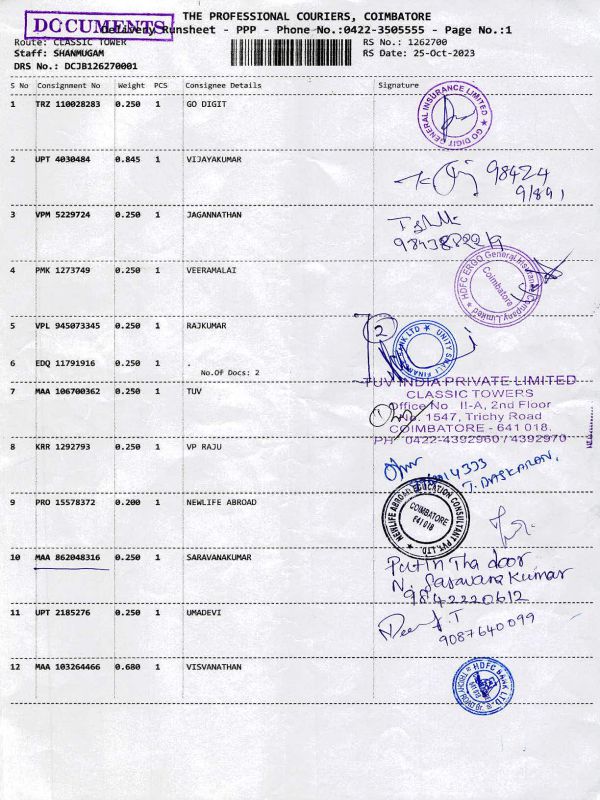 THE PROFESSIONAL COURIERS, COIMBATORE
DOCUMENTS
Delivery Runsheet - PPP - Phone No.:0422-3505555 - Page No.:1
Route: CLASSIC TOWER RS No.: 1262700
Staff: SHANMUGAM RS Date: 25-Oct-2023
DRS No.: DCJB126270001
S No Consignment No Weight PCS Consignee Details Signature
1 TRZ 110028283 0.250 1 GO DIGIT
GO DIGIT GENERAL INSURANCE LIMITED
2 UPT 4030484 0.845 1 VIJAYAKUMAR
98424
91891
3 VPM 5229724 0.250 1 JAGANNATHAN
4 PMK 1273749 0.250 1 VEERAMALAI
HDFC ERGO General Insurance Company Limited
Coimbatore
5 VPL 945073345 0.250 1 RAJKUMAR
2
UNITY SMALL FINANCE BANK LTD
6 EDQ 11791916 0.250 1 .
No.Of Docs: 2
7 MAA 106700362 0.250 1 TUV
TUV INDIA PRIVATE LIMITED
CLASSIC TOWERS
Office No II-A, 2nd Floor
No. 1547, Trichy Road
COIMBATORE - 641 018.
PH 0422-4392960 / 4392970
8 KRR 1292793 0.250 1 VP RAJU
J. BASKARAN.
9 PRO 15578372 0.200 1 NEWLIFE ABROAD
NEWLIFE ABROAD EDUCATION CONSULTANT PVT. LTD.
COIMBATORE
641 018
10 MAA 862048316 0.250 1 SARAVANAKUMAR
Put in Tha door
N. Saravana Kumar
9842220612
11 UPT 2185276 0.250 1 UMADEVI
9087640099
12 MAA 103264466 0.680 1 VISVANATHAN
HDFC BANK LTD